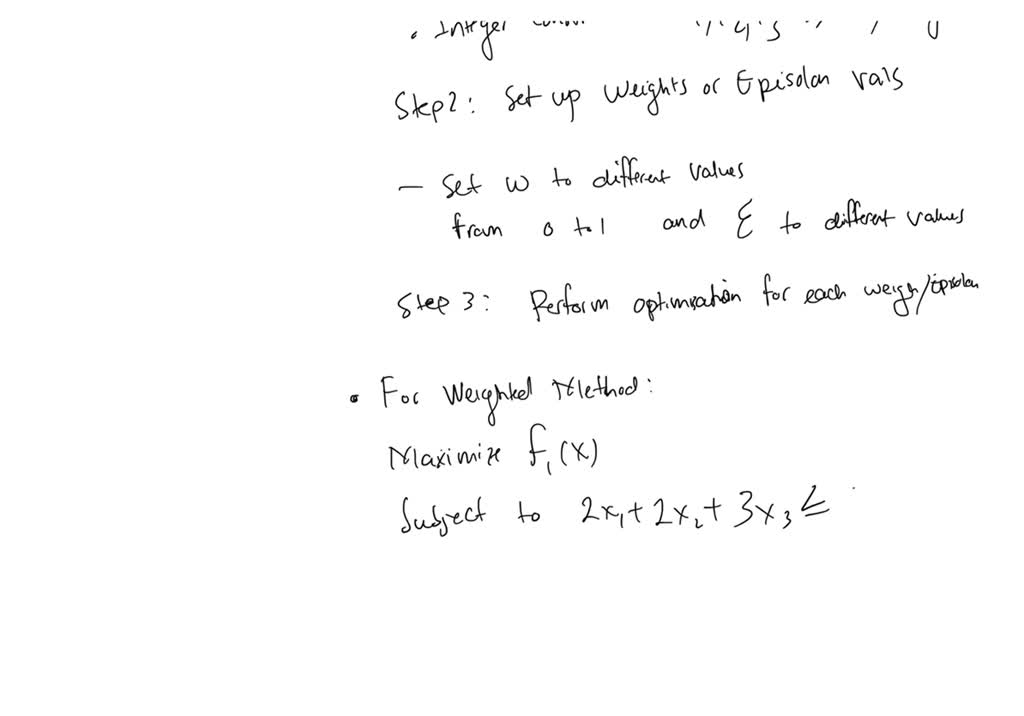 • Integer
Step2: Set up Weights or Episolon vals
— Set w to different values
from 0 to 1 and ξ to different values
Step 3: Perform optimisation for each weigh/Episolon
• For Weighted Method:
Maximize f₁(x)
Subject to 2x₁+2x₂+3x₃≤